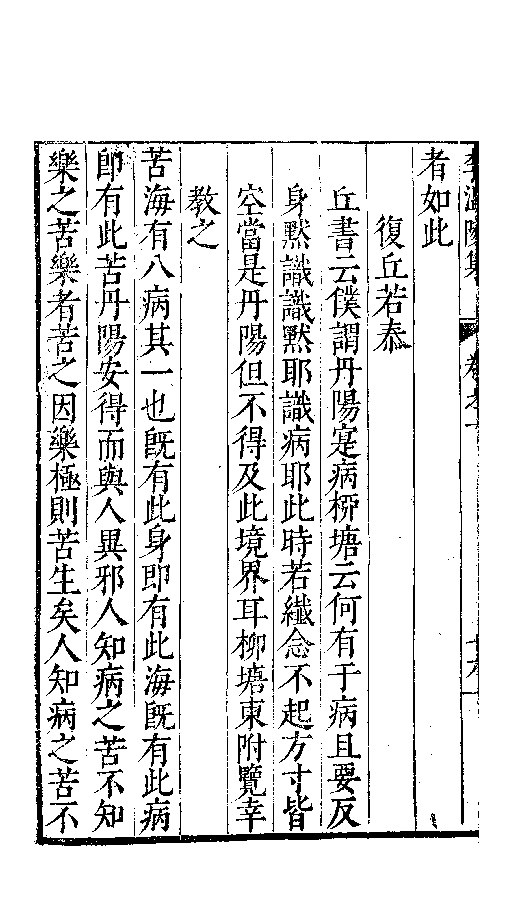 李溫陵集 卷之
者如此
復丘若泰
丘書云僕謂丹陽寔病桞塘云何有于病且要反
身默識識默耶識病耶此時若纖念不起方寸皆
空當是丹陽但不得及此境界耳桞塘東附覽幸
教之
苦海有八病其一也旣有此身即有此海旣有此病
卽有此苦丹陽安得而與人異邪人知病之苦不知
樂之苦樂者苦之因樂極則苦生矣人知病之苦不